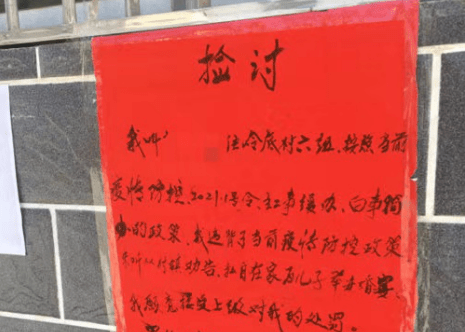 捡讨
我叫 住冷底村六组,按照当前
疫情防控,2021.1号令,红事缓办,白事简
办的政策,我违背了当前疫情防控政策
未听从村镇劝告,私自在家为儿子举办婚宴
我愿意接受上级对我的处罚